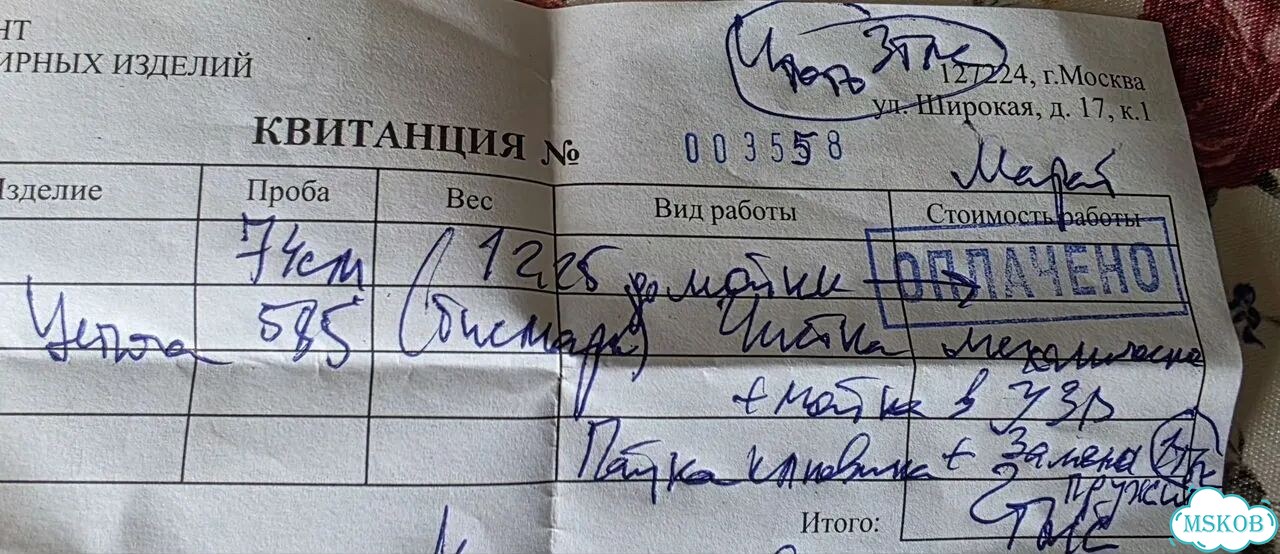 НТ
ИРНЫХ ИЗДЕЛИЙ
127224, г.Москва
ул. Широкая, д. 17, к.1
КВИТАНЦИЯ № 003558
Марат
Изделие Проба Вес Вид работы Стоимость работы
74см 12,25 до мойки
ОПЛАЧЕНО
585 (бисмарк) Чистка механическая
+ мойка в УЗВ
Пайка + Замена
пружин
Итого:
MSKOB